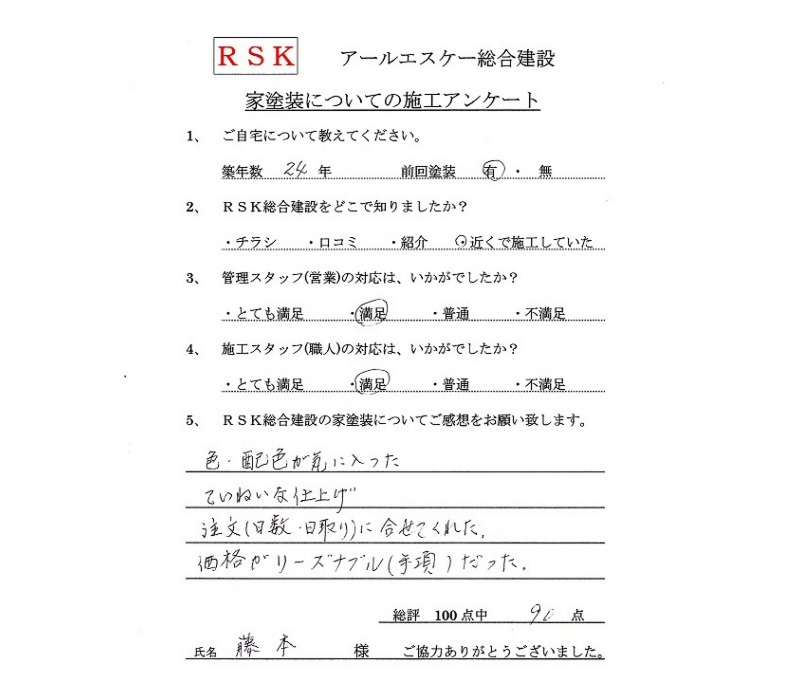 RSK アールエスケー総合建設
家塗装についての施工アンケート
1、 ご自宅について教えてください。
築年数 24 年 前回塗装 有 ・ 無
2、 RSK総合建設をどこで知りましたか？
・チラシ ・口コミ ・紹介 ・近くで施工していた
3、 管理スタッフ(営業)の対応は、いかがでしたか？
・とても満足 ・満足 ・普通 ・不満足
4、 施工スタッフ(職人)の対応は、いかがでしたか？
・とても満足 ・満足 ・普通 ・不満足
5、 RSK総合建設の家塗装についてご感想をお願い致します。
色・配色が気に入った
ていねいな仕上げ
注文(日数・日取り)に合せてくれた。
価格がリーズナブル(手頃)だった。
総評 100点中 90 点
氏名 藤本 様 ご協力ありがとうございました。